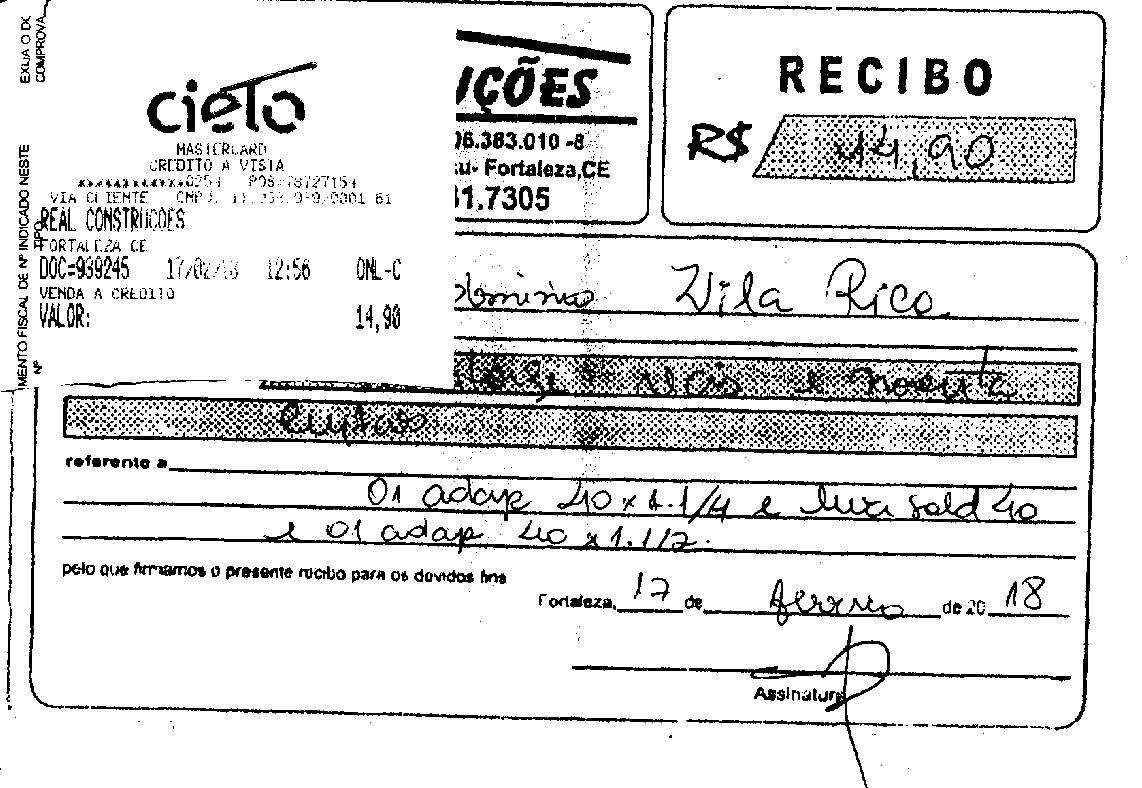 EXIJA O DO
COMPROVA
MENTO FISCAL DE Nº INDICADO NESTE
Nº TIPO
cielo
MASTERCARD
CREDITO A VISTA
************6254 POS=78727154
VIA CLIENTE CNPJ:
REAL CONSTRUCOES
FORTALEZA CE
DOC=939245 17/02/18 12:56 ONL-C
VENDA A CREDITO
VALOR: 14,90
IÇÕES
06.383.010-8
Fortaleza,CE
31.7305
RECIBO
R$ 14,90
dominio Vila Rica
torze reais e noventa
centavos
referente a
01 adap 40 x 1.1/4 e luva sold 40
e 01 adap 40 x 1.1/2.
pelo que firmamos o presente recibo para os devidos fins
Fortaleza, 17 de fevereiro de 20 18
Assinatura